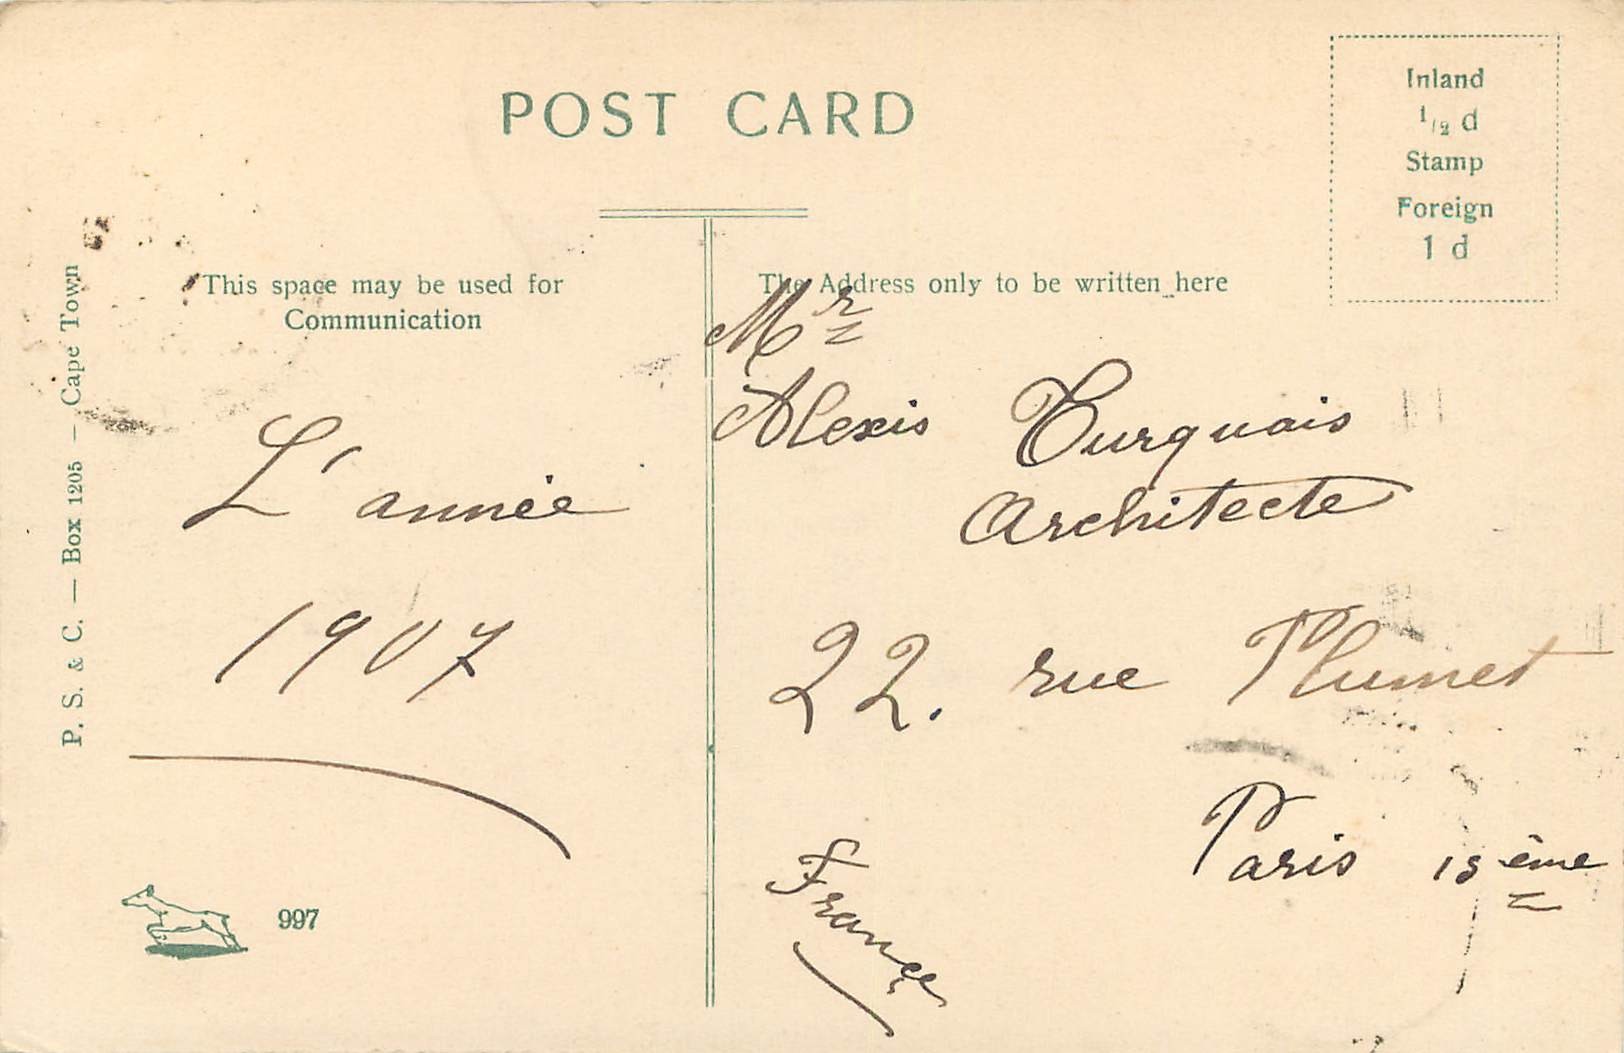 POST CARD
Inland
1/2 d
Stamp
Foreign
1 d
P. S. & C. — Box 1205 — Cape Town
This space may be used for
Communication
L'année
1907
997
The Address only to be written here
Mr
Alexis Turquais
Architecte
22. rue Plumet
Paris 15ème
France